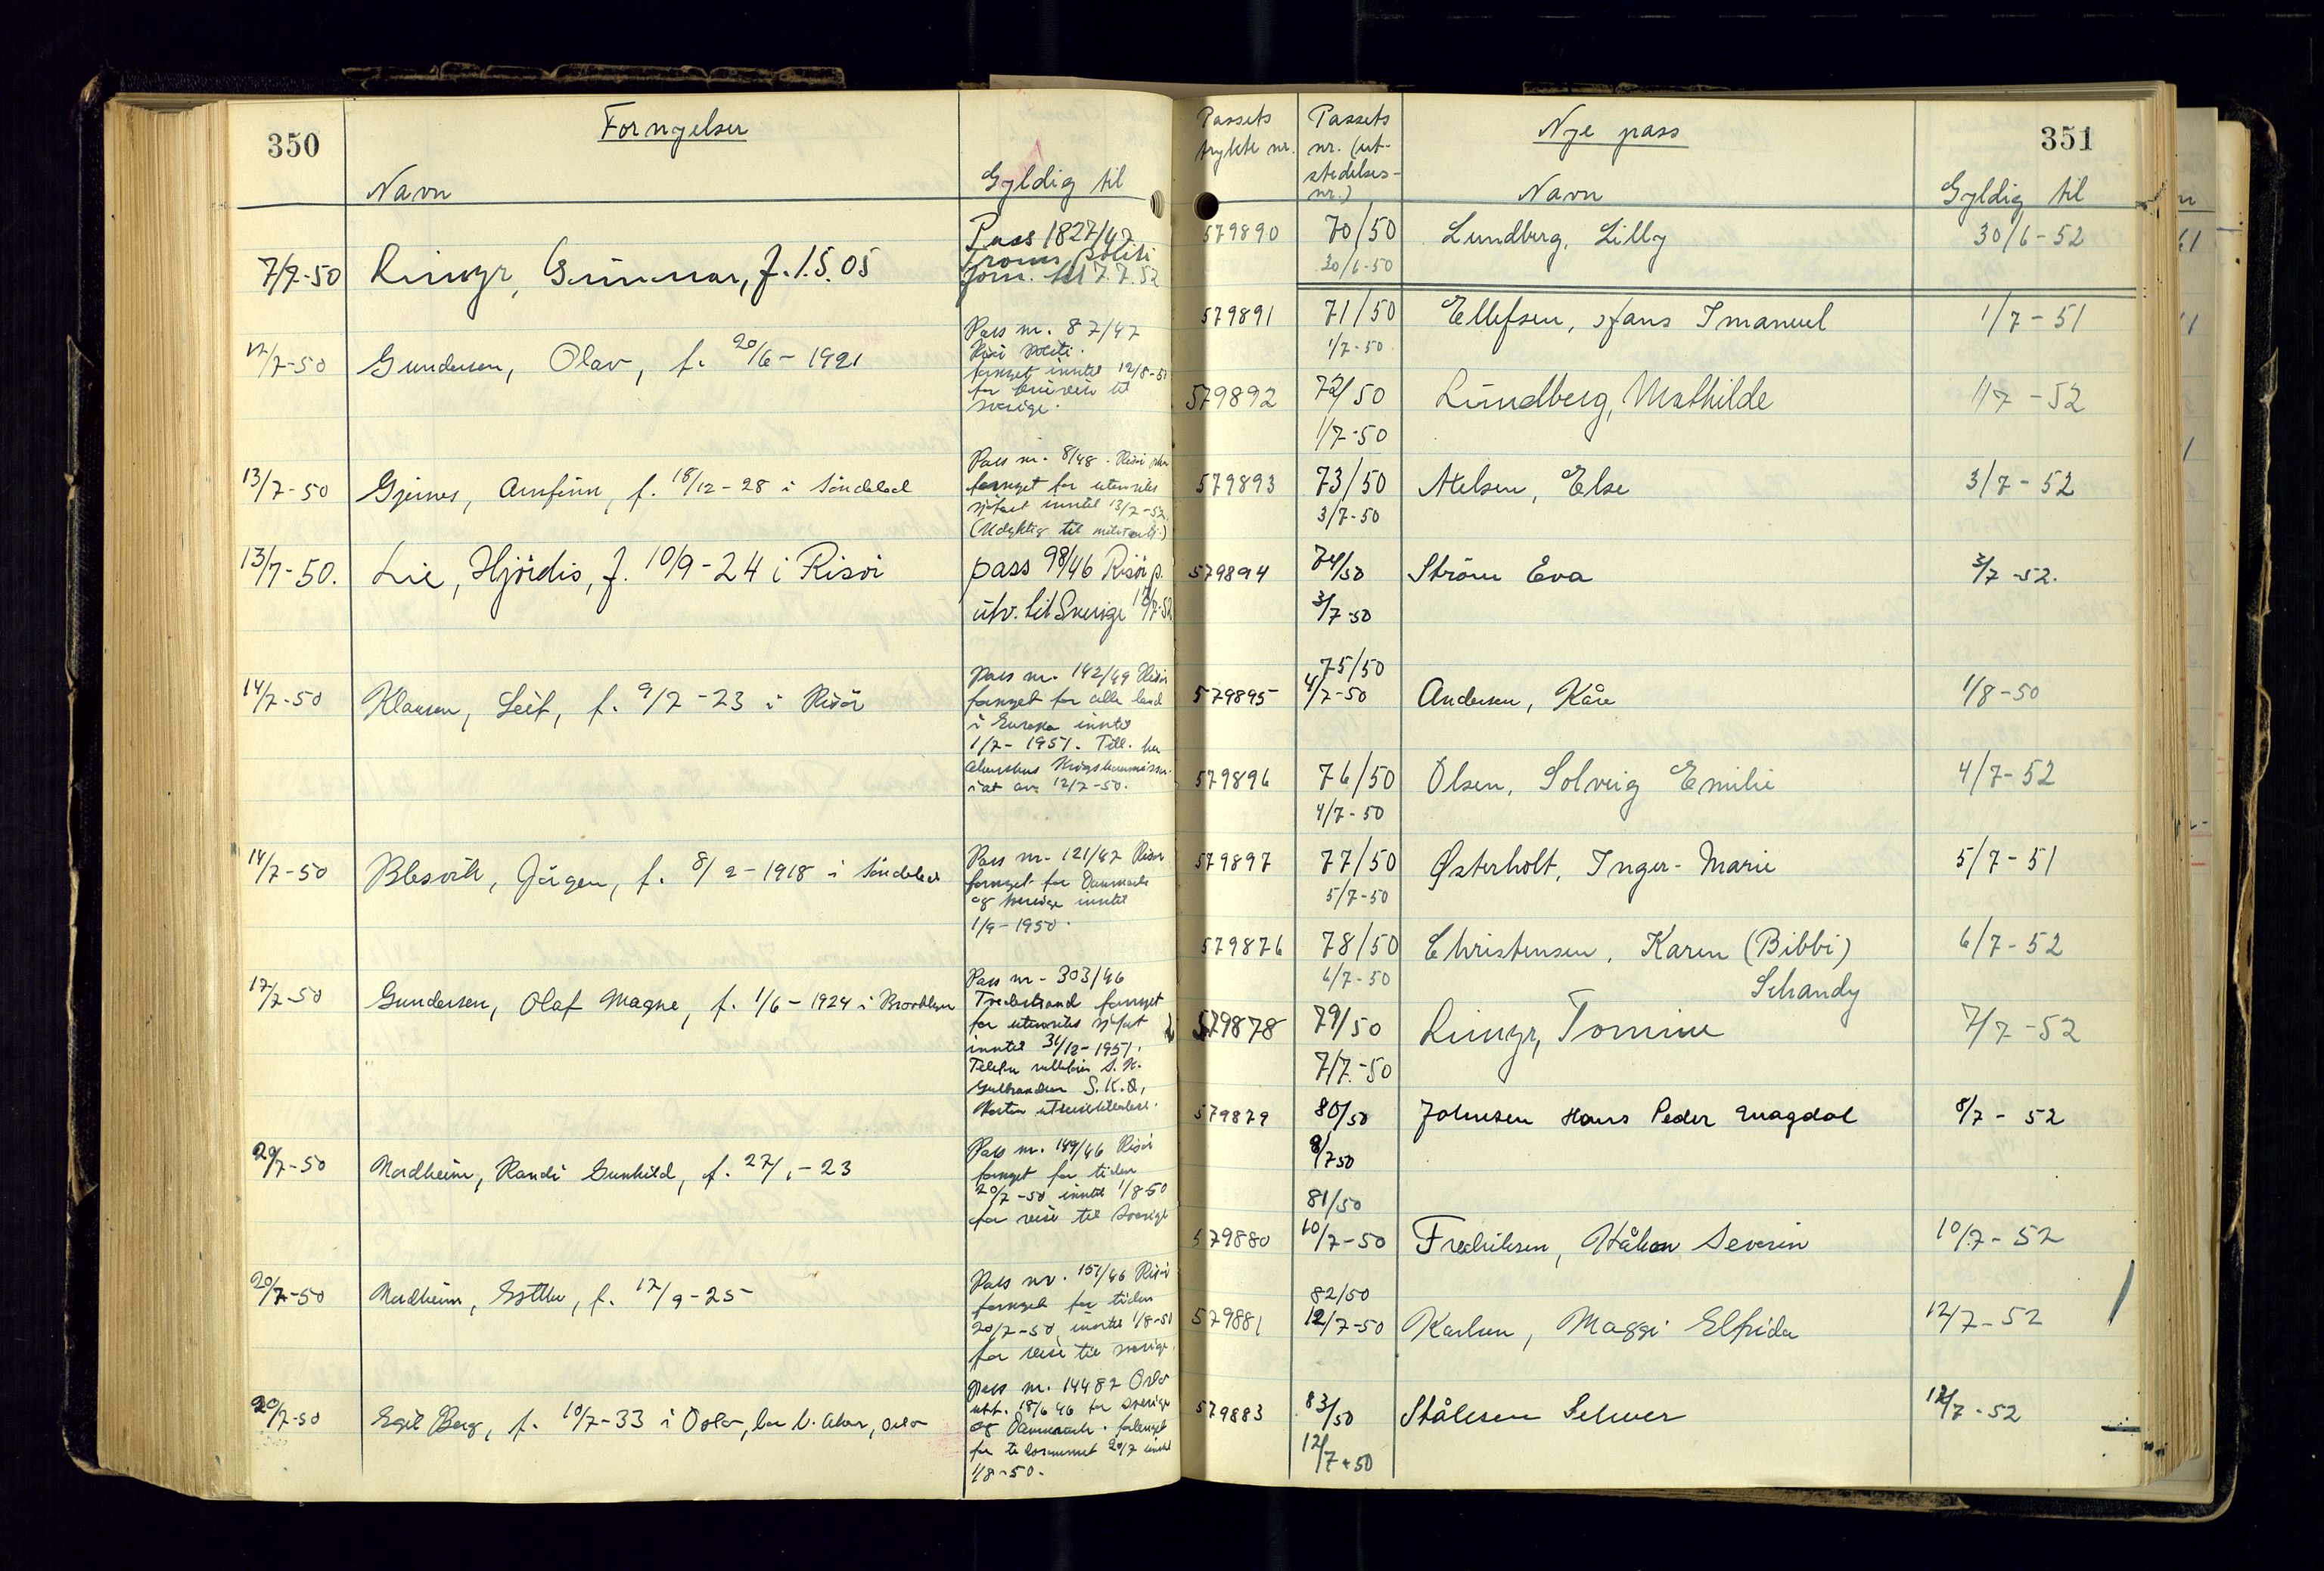 350
Fornyelser
Navn
Gyldig til
7/7-50 Lingr, Gunnar, f. 1.5.05
Pass 1827/47
Troms politi
forn. til 7.7.52
12/7-50 Gundersen, Olav, f. 20/6 - 1921
Pass nr. 87/47
Risör politi.
fornyet inntil 12/8-50
for
til
Sverige.
13/7-50 Gjernes, Arnfinn, f. 18/12-28 i Söndeled
Pass nr. 8/48 - Risör
fornyet for utenriks
sjöfart inntil 13/7-52.
(Udyktig til
13/7-50. Lie, Hjördis, f. 10/9-24 i Risör
pass 98/46 Risör p.
utv. til Sverige
14/7-50 Klausen, Leif, f. 9/7-23 i Risör
Pass nr. 142/49 Risör
fornyet for alle land
i Europa inntil
1/7-1951. Till. fra
Akershus Krigskommissar-
iat av 12/7-50.
14/7-50 Blesvik, Jörgen, f. 8/2-1918 i Söndeled
Pass nr. 121/47 Risör
fornyet for Danmark
og Sverige inntil
1/9-1950.
17/7-50 Gundersen, Olaf Magne, f. 1/6-1924 i Brooklyn
Pass nr. 303/46
Tvedestrand fornyet
for utenriks sjöfart
inntil 31/12-1951.
S. K.
Gulbrandsen S.K.Ö,
Horten
20/7-50 Nordheim, Randi Gunhild, f. 27/1-23
Pass nr. 149/46 Risör
fornyet for tiden
20/7-50 inntil 1/8-50
for reise til Sverige
20/7-50 Nordheim, Esther, f. 17/9-25
Pass nr. 151/46 Risör
fornyet for tiden
20/7-50 inntil 1/8-50
for reise til Sverige.
20/7-50 Egil Berg, f. 10/7-33 i Oslo, Oslo
Pass nr. 14487 Oslo
utst. 18/6 46 for Sverige
og Danmark. forlenget
for tidsrommet 20/7 inntil
1/8-50.
351
Passets trykte nr.
Passets nr. (ut-
stedelses-
nr.)
Nye pass
Navn
Gyldig til
579890 70/50 Lundberg, Lilly 30/6-52
30/6-50
579891 71/50 Ellefsen, Hans Imanuel 1/7-51
1/7-50
579892 72/50 Lundberg, Mathilde 1/7-52
1/7-50
579893 73/50 Axelsen, Else 3/7-52
3/7-50
579894 74/50 Ström Eva 3/7-52.
3/7-50
75/50
579895 4/7-50 Andersen, Kåre 1/8-50
579896 76/50 Olsen, Solveig Emilie 4/7-52
4/7-50
579897 77/50 Østerholt, Inger-Marie 5/7-51
5/7-50
579876 78/50 Christensen, Karen (Bibbi) 6/7-52
6/7-50 Schandy
579878 79/50 Lingr, Tomine 7/7-52
7/7-50
579879 80/50 Johnsen Hans Peder Magdal 8/7-52
8/7 50
81/50
579880 10/7-50 Fredriksen, Håkon Severin 10/7-52
82/50
579881 12/7-50 Karlsen, Maggi Elfrida 12/7-52
579883 83/50 Stålesen Selmer 12/7-52
12/7-50